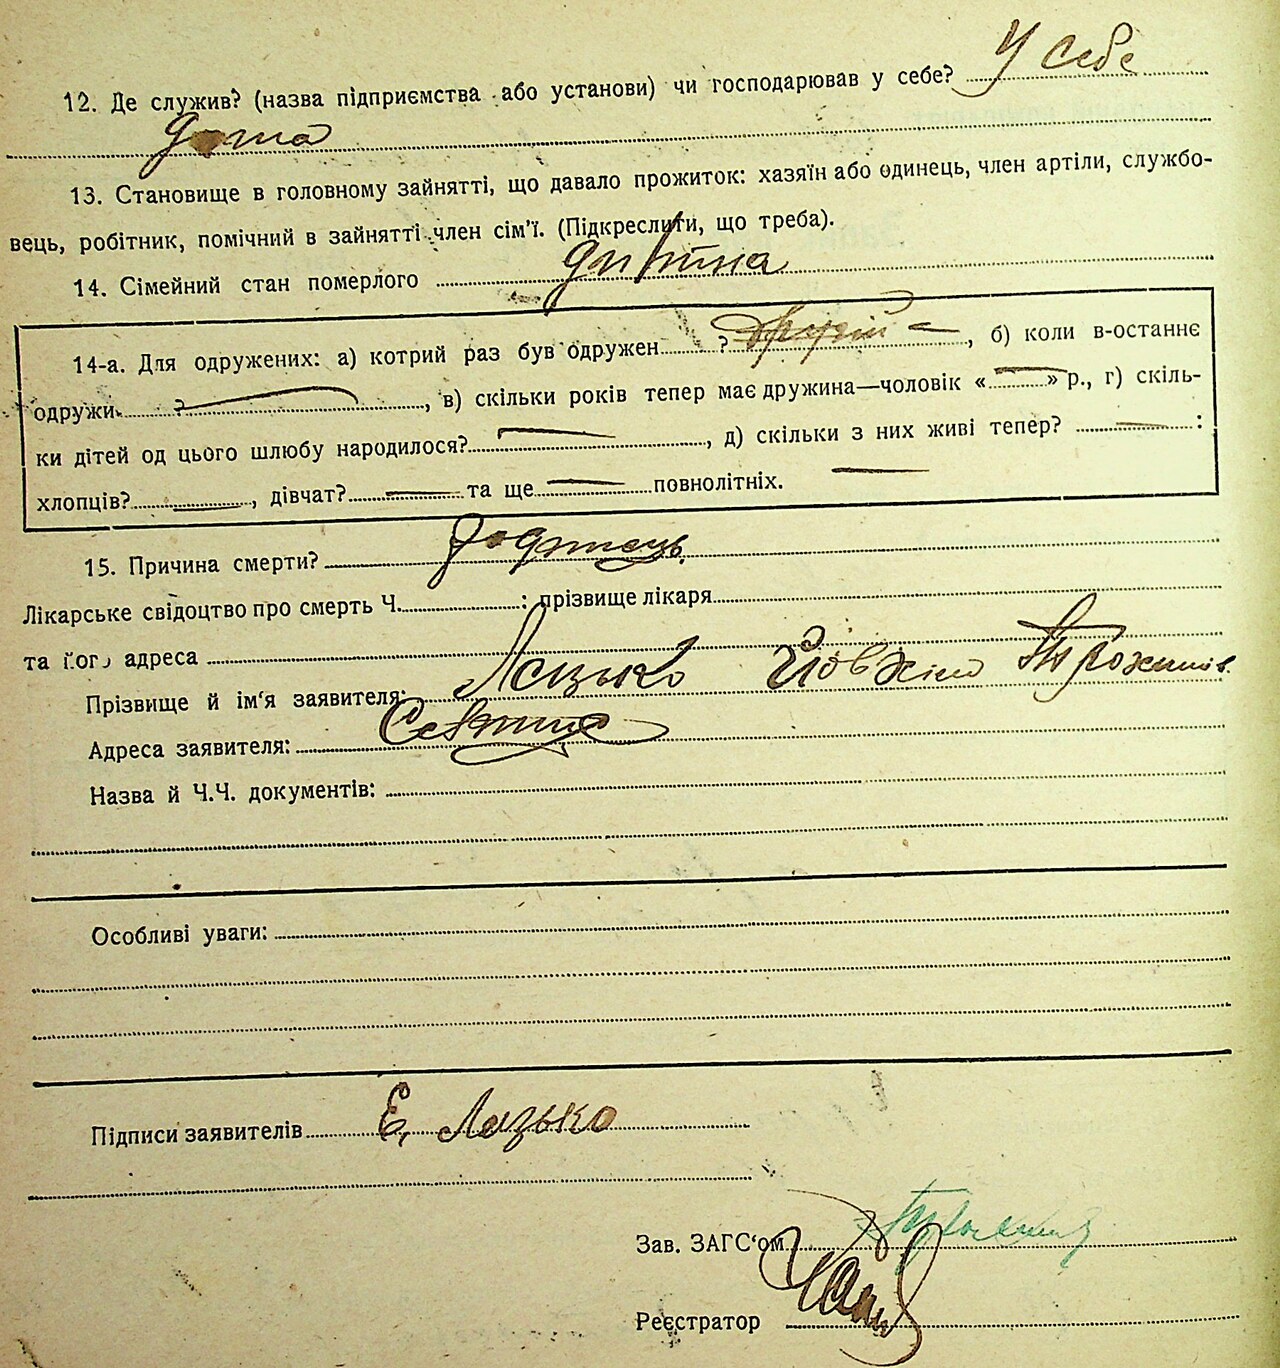 12. Де служив? (назва підприємства або установи) чи господарював у себе? У себе
дома
13. Становище в головному зайнятті, що давало прожиток: хазяїн або одинець, член артіли, службо-
вець, робітник, помічний в зайнятті член сім'ї. (Підкреслити, що треба).
14. Сімейний стан померлого дитина
14-а. Для одружених: а) котрий раз був одружен ? , б) коли в-останнє
одружи ? — , в) скільки років тепер має дружина—чоловік «—» р., г) скіль-
ки дітей од цього шлюбу народилося? — , д) скільки з них живі тепер? — :
хлопців? — , дівчат? — та ще — повнолітніх. —
15. Причина смерти?
Лікарське свідоцтво про смерть Ч. : прізвище лікаря
та його адреса
Прізвище й ім'я заявителя: Лазько
Адреса заявителя:
Назва й Ч.Ч. документів:
Особливі уваги:
Підписи заявителів Е. Лазько
Зав. ЗАГС'ом
Реєстратор